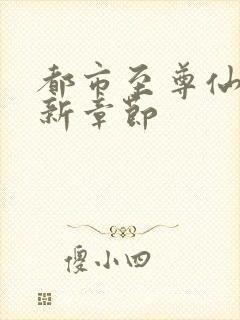 都市至尊仙
新章節
傻小四